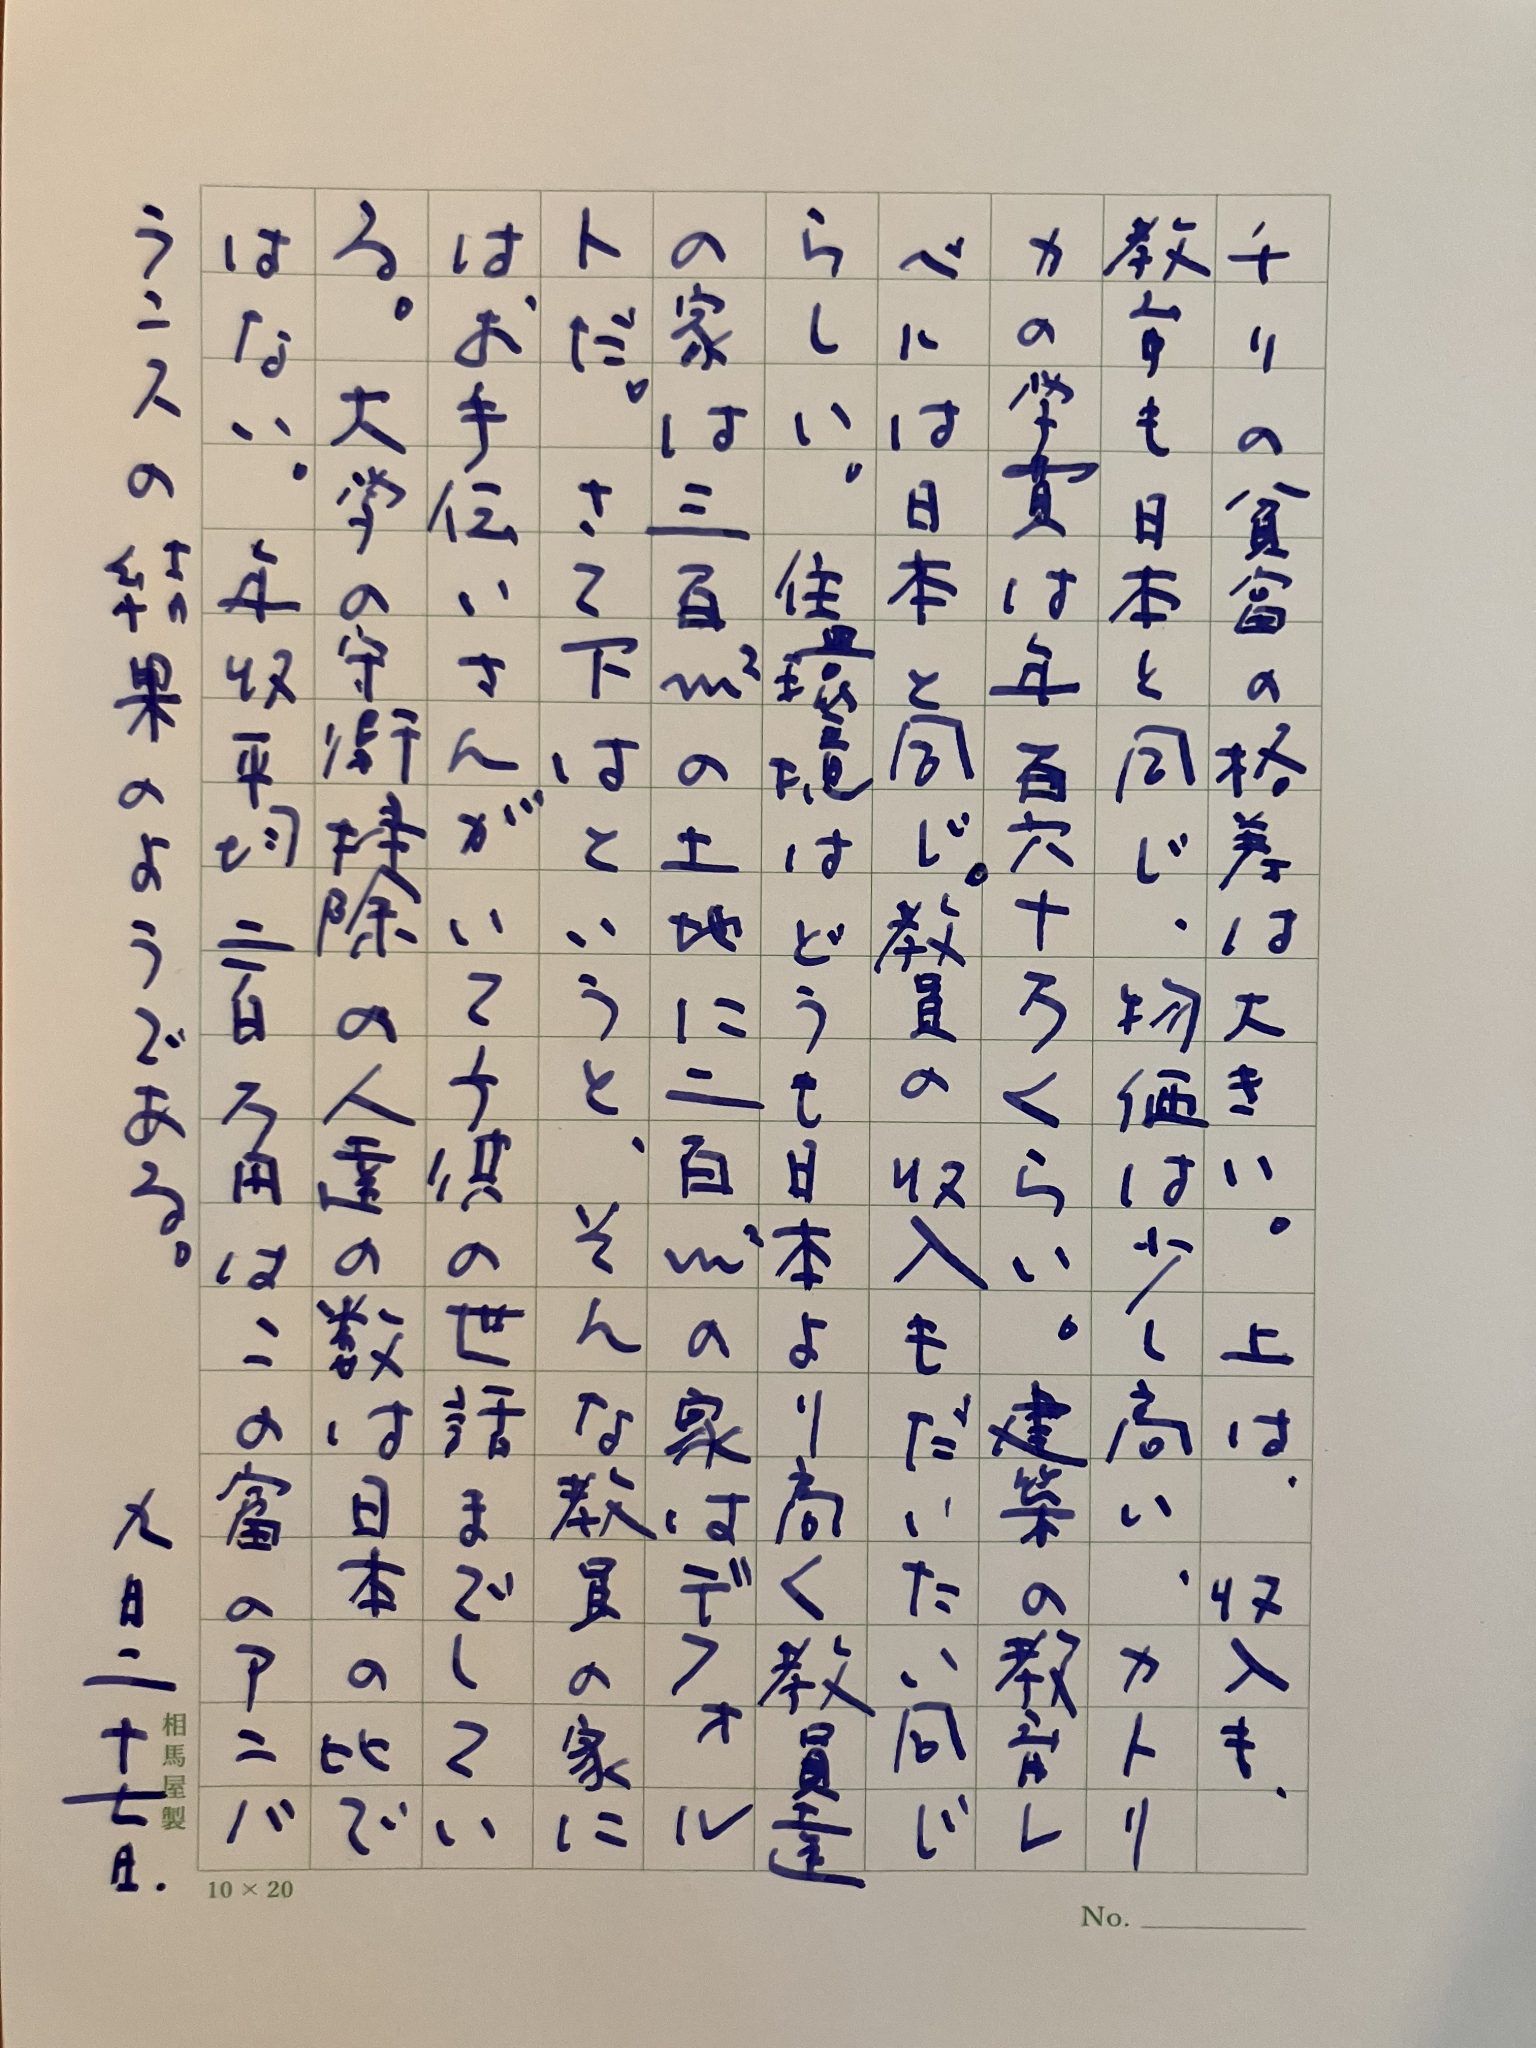 チリの貧富の格差は大きい。上は、収入も、
教育も日本と同じ、物価は少し高い、カトリ
カの学費は年百六十万くらい。建築の教育レ
ベルは日本と同じ。教員の収入もだいたい同じ
らしい。住環境はどうも日本より高く教員達
の家は三百m²の土地に二百m²の家はデフォル
トだ。さて下はというと、そんな教員の家に
はお手伝いさんがいて子供の世話までしてい
る。大学の守衛掃除の人達の数は日本の比で
はない。年収平均二百万円はこの富のアンバ
ランスの結果のようである。
九月二十七日.
相馬屋製
10×20
No.